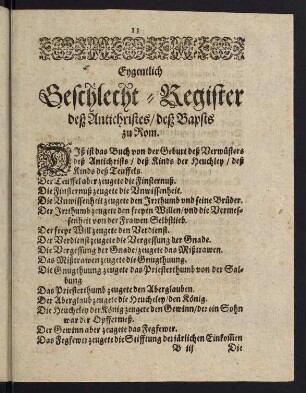 11
Eygentlich
Geschlecht-Register
deß Antichristes/ deß Bapsts
zu Rom.
DIß ist das Buch von der Geburt deß Verwüsters
deß Antichrists/ deß Kinds der Heuchley/ deß
Kinds deß Teuffels.
Der Teuffel aber zeugete die Finsternuß.
Die Finsternuß zeugete die Unwissenheit.
Die Unwissenheit zeugete den Irrthumb und seine Brüder.
Der Irrthumb zeugete den freyen Willen/ und die Vermes-
senheit von der Frawen Selbstlieb.
Der freye Will zeugete den Verdienst.
Der Verdienst zeugete die Vergessung der Gnade.
Die Vergessung der Gnade/ zeugete das Mißtrawen.
Das Mißtrawen zeugete die Gnugthuung.
Die Gnugthuung zeugete das Priesterthumb von der Sal-
bung
Das Priesterthumb zeugete den Aberglauben.
Der Aberglaub zeugete die Heucheley/ den König.
Die Heucheley der König zeugete den Gewinn/ der ein Sohn
war der Opffermeß.
Der Gewinn aber zeugete das Fegfewr.
Das Fegfewer zeugete die Stifftung der järlichen Einkom̃en
B iij Die